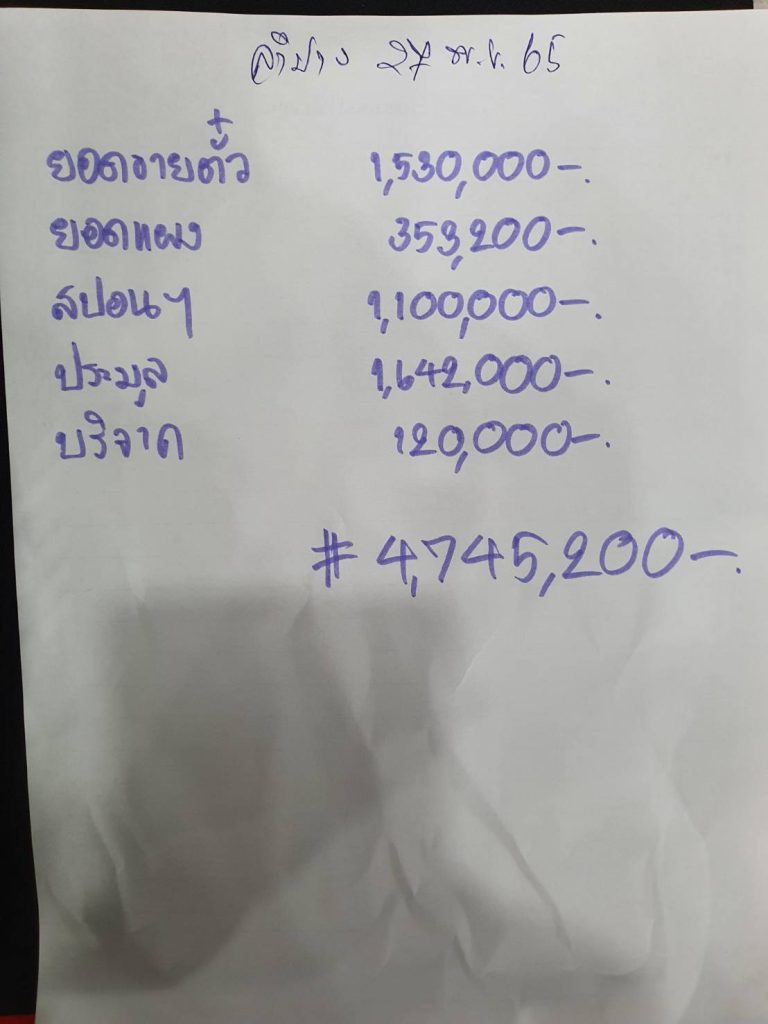 ลำปาง 27 พ.ย. 65
ยอดขายตั๋ว 1,530,000-.
ยอดแผง 353,200-.
สปอนฯ 1,100,000-.
ประมูล 1,642,000-.
บริจาค 120,000-.
# 4,745,200-.